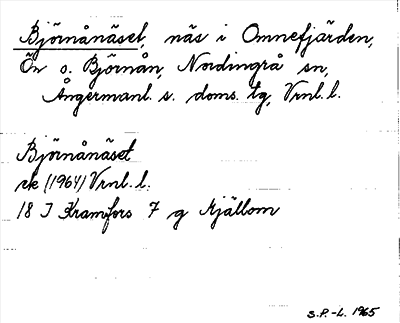 Björnånäset, näs i Omnefjärden,
Ön o. Björnån, Nordingrå sn,
Ångermanl. s. doms. tg, Vrnl. l.
Björnånäset
ek (1964) Vrnl. l.
18 I Kramfors 7 g Mjällom
S.P.-L. 1965